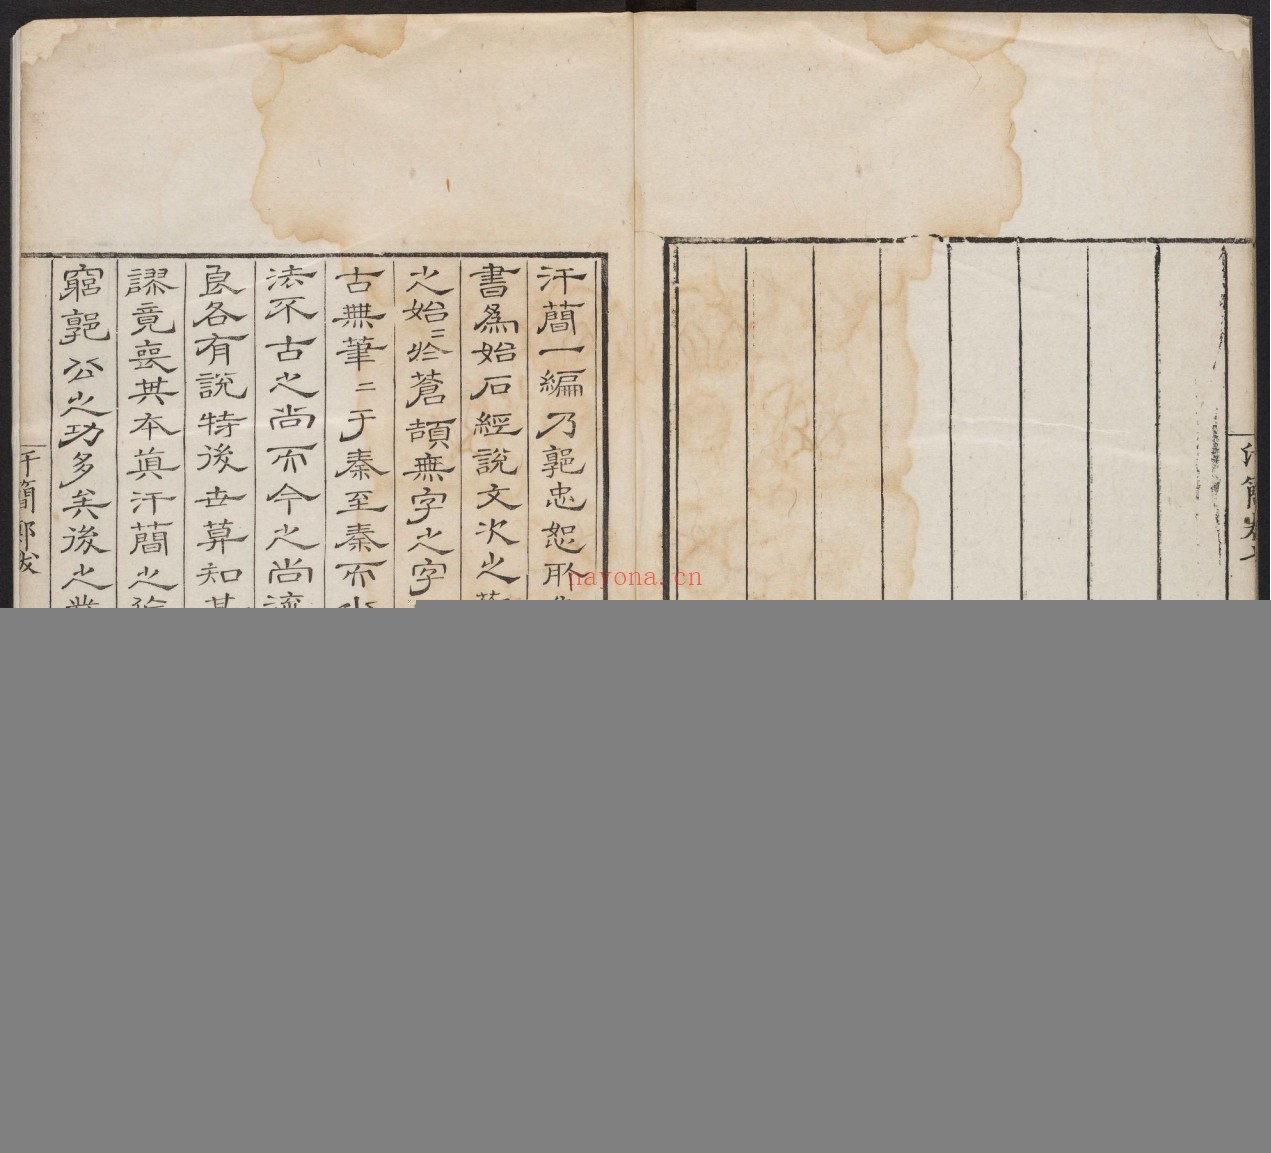 汗簡一編乃郭忠恕所
書為始石經說文次之
之始二於蒼頡無字之字
古無筆二于秦至秦而
法不古之尚而今之尚
良各有說特後世算知
謬竟喪其本真汗簡之
窮郭公之功多矣後之
汗簡
nayona.cn